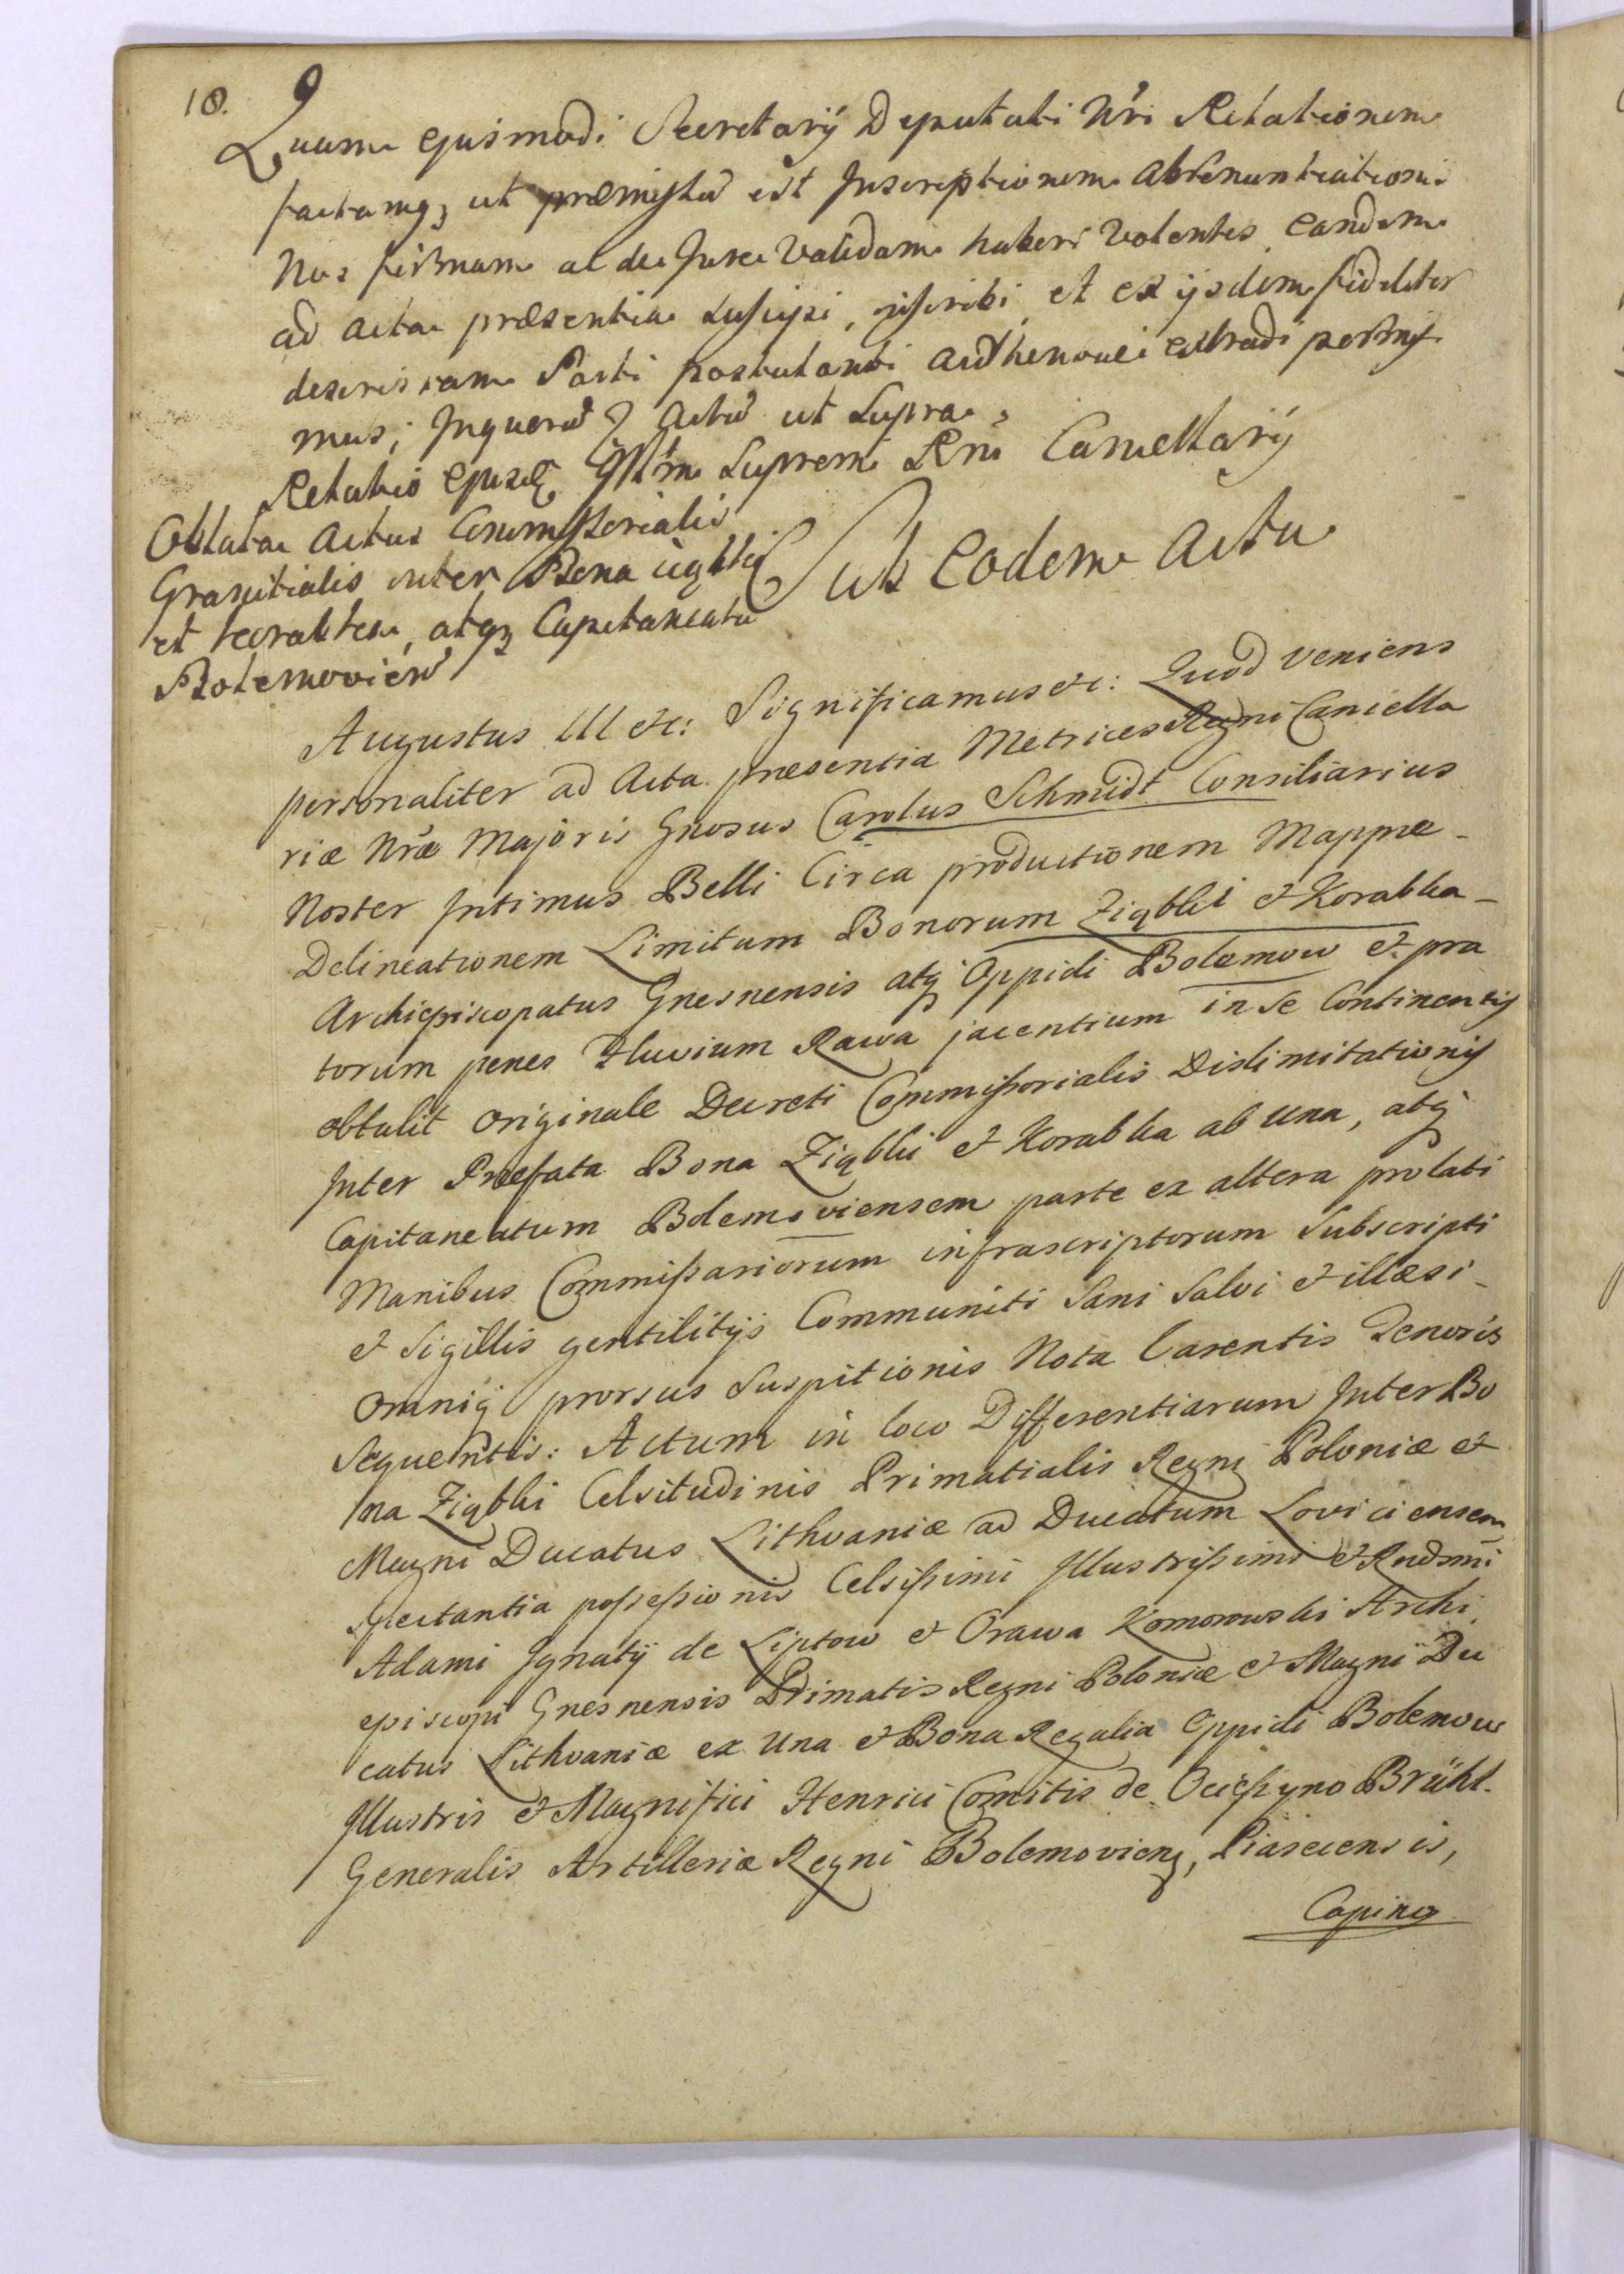 18.
9
Quam ejusmodi Secretarÿ Deputati Nri Relationem
factamq3 ut præmissũ est Inscriptionem abrenuntiationis
Nos firmam ac de Jure validam haberi volentes, eandem
ad acta præsentia suscipi, inscribi, et ex ijsdem fideliter
descriptam Parti postulanti authentice extradi permisi
mus; In quorũ Actũ ut supra.
Relatio ejusdẽ Illm Supremi Rni Cancellarÿ
Oblata Actus Commissorialis
Granitialis inter Bona Ziąbki
et Korabka, atq3 Capitaneatũ
Bolemoviens
Sub Eodem Actu
Augustus III etc: Significamus etc: Quod veniens
personaliter ad Acta præsentia Metrices Regni Cancella
riæ Nræ Majoris Gnosus Carolus Schmidt Consiliarius
Noster Intimus Belli Circa productionem Mappæ-
Delineationem Limitum Bonorum Ziąbki & Korabka-
Archiepiscopatus Gnesnensis atq Oppidi Bolemow & pra
torum penes Fluvium Rawa jacentium in se Continentis
obtulit originale Decreti Commissorialis Dislimitationis
Inter Præfata Bona Ziąbki & Korabka ab una, atq
Capitaneatum Bolemoviensem parte ex altera prolati
Manibus Commissariorum infrascriptorum Subscripti
& Sigillis gentilitÿs Communiti Sani Salvi & illæsi-
omniq prorsus Suspitionis Nota Carentis Tenoris
Sequentis: Actum in loco Differentiarum Inter Bo
na Ziąbki Celsitudinis Primatialis Regni Poloniæ &
Magni Ducatus Lithvaniæ ad Ducatum Loviciensem
Spectantia possessionis Celsissimi Illustrissimi & Rndsmi
Adami Ignatÿ de Liptow & Orawa Komorowski Archi
episcopi Gnesnensis Primatis Regni Poloniæ & Magni Du
catus Lithvaniæ ex Una & Bona Regalia Oppidi Bolemow
Illustris & Magnifici Henrici Comitis de Ocieszyno Brühl
Generalis Artilleriæ Regni Bolemoviens, Piasecensis,
Lopinen